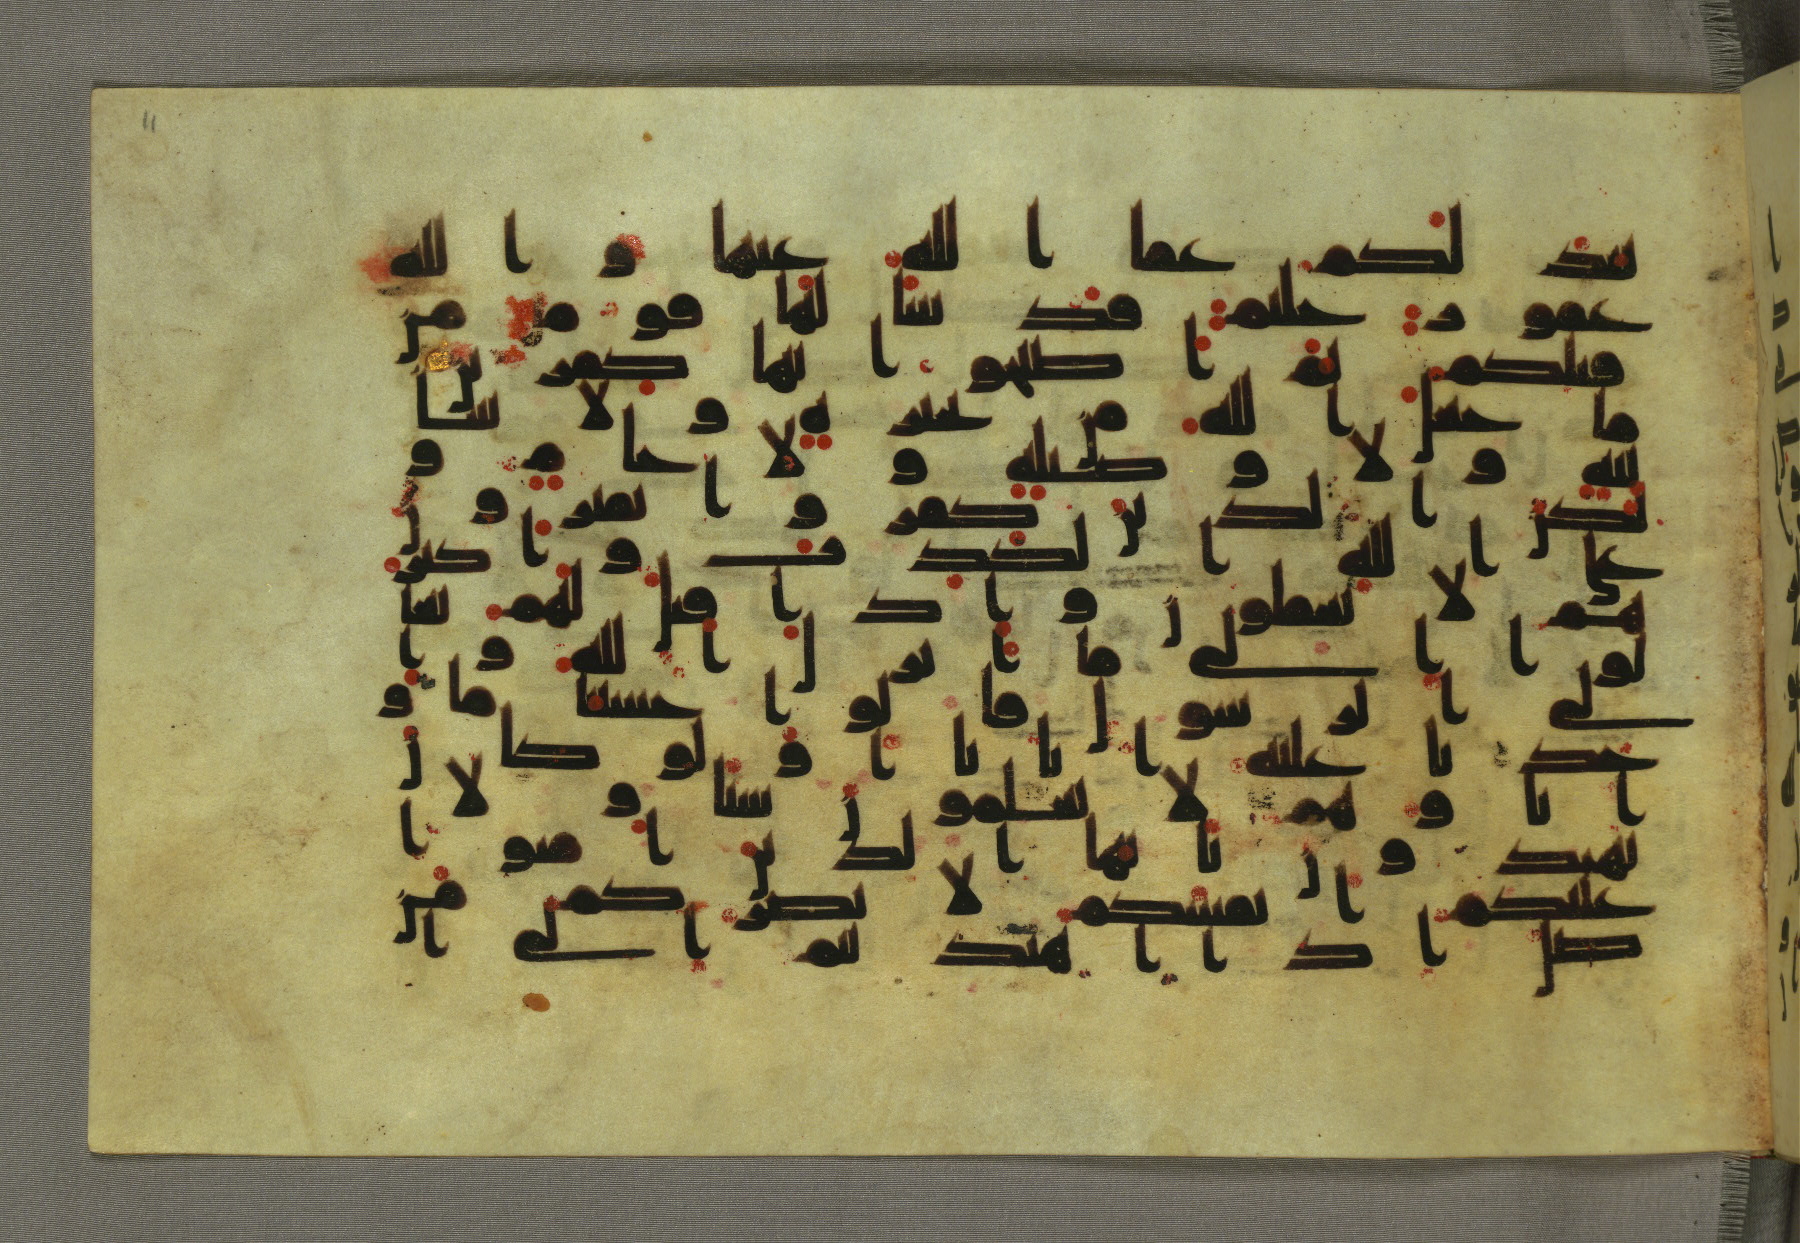 11
تبد لكم عفا الله عنها والله
غفور حليم قد سألها قوم من
قبلكم ثم اصبحوا بها كفرين
ما جعل الله من بحيرة ولا سا
ئبة ولا وصيلة ولا حام و
لكن الذين كفروا يفترون
على الله الكذب واكثر
هم لا يعقلون واذا قيل لهم تعا
لوا الى ما انزل الله وا
لى الرسول قالوا حسبنا ما و
جدنا عليه ابانا اولو كان
اباوهم لا يعلمون شيا ولا
يهتدون يايها الذين امنوا
عليكم انفسكم لا يضركم من
ضل اذا اهتديتم الى ا